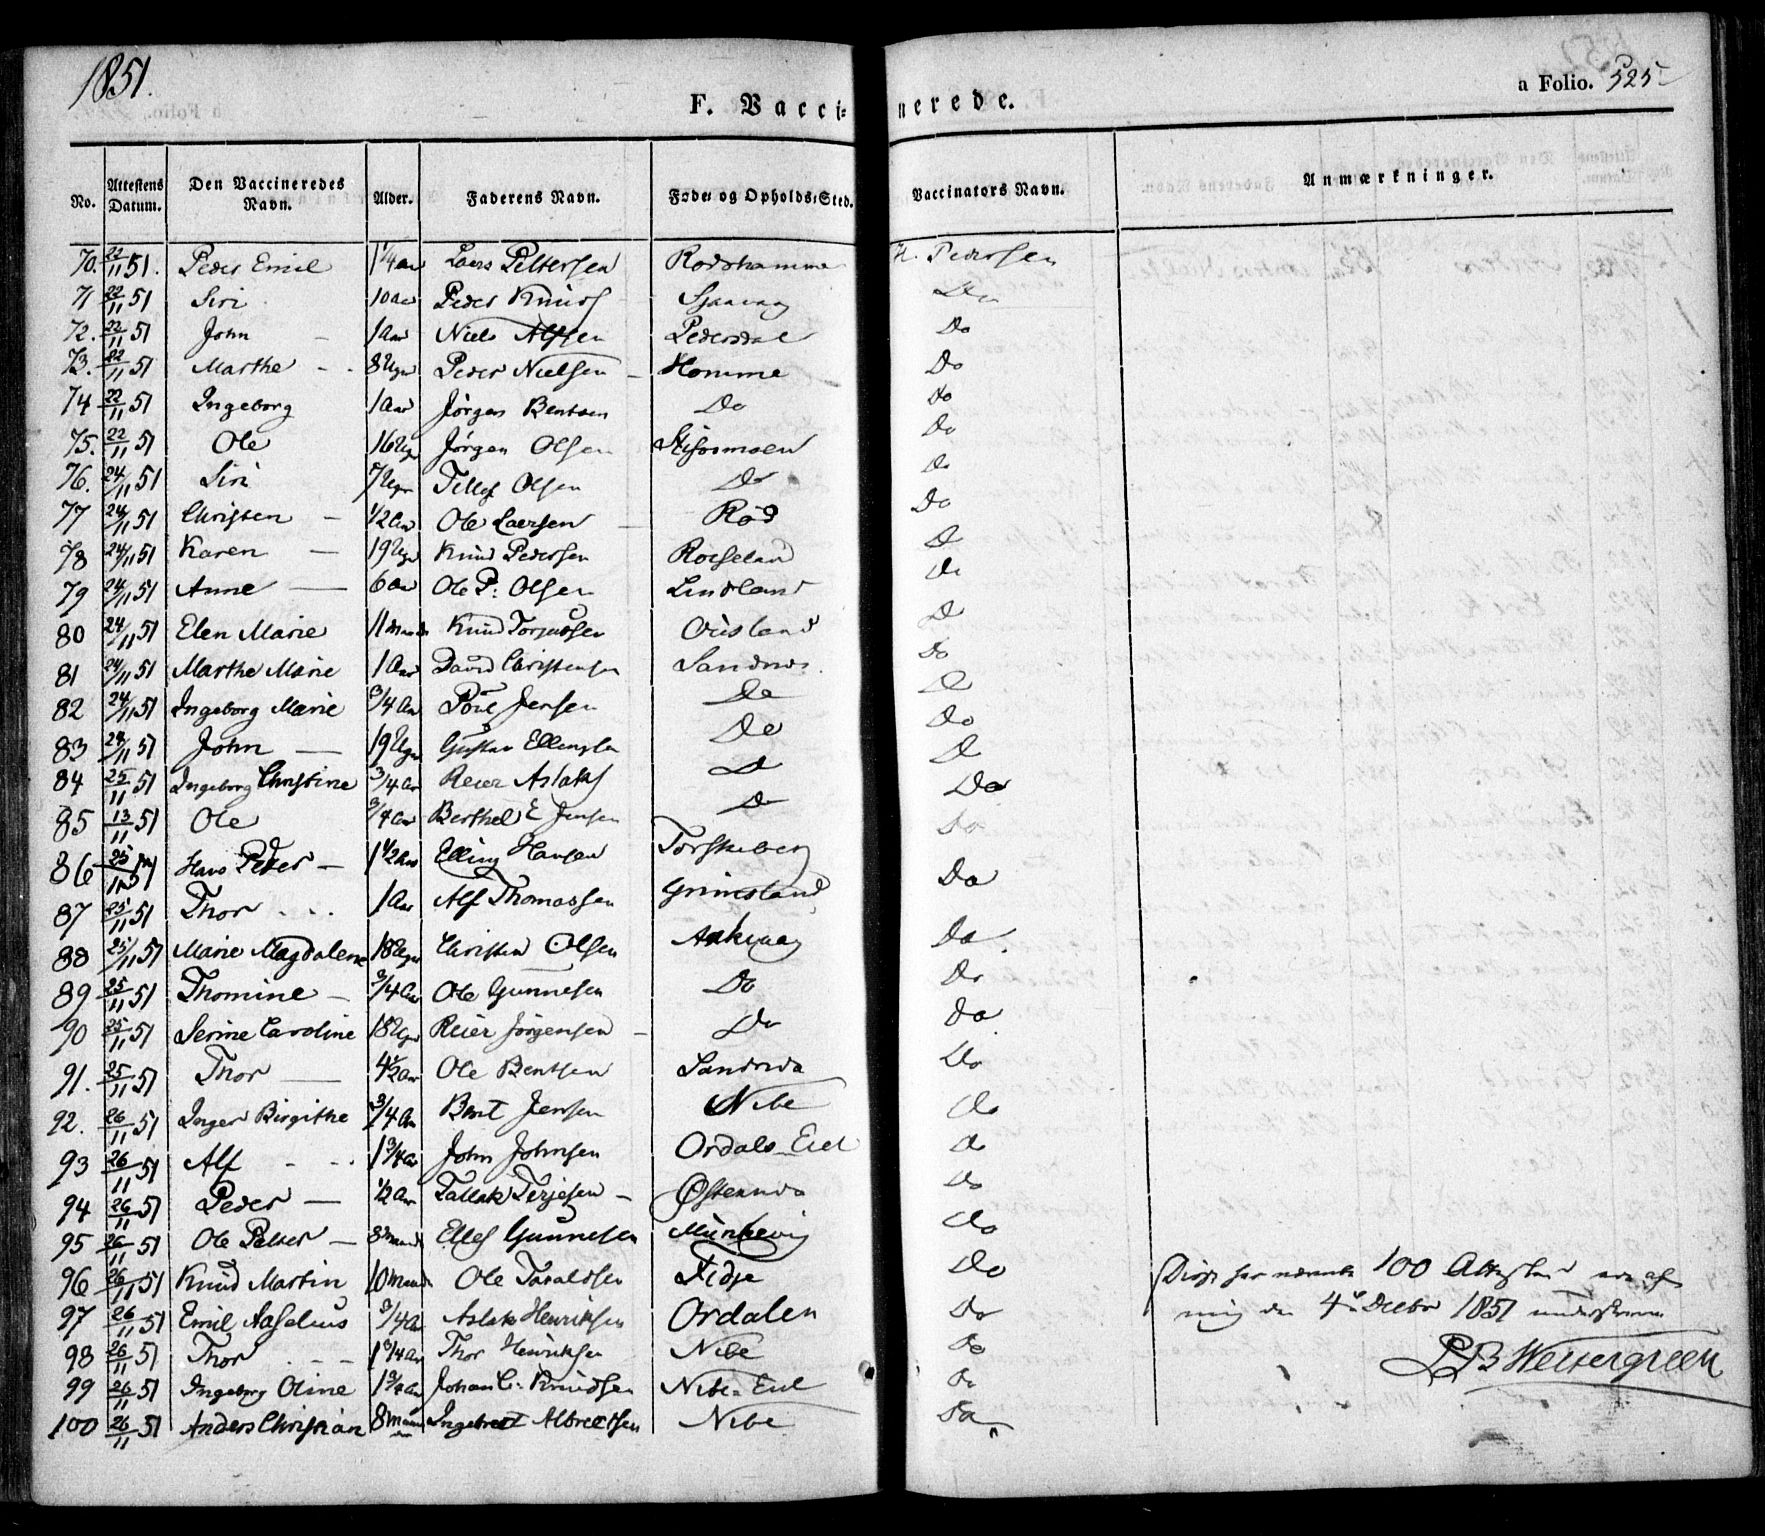 1851.
a Folio. 525
F. Vacci⸗ nerede.
No. Attestens Datum. Den Vaccineredes Navn. Alder. Faderens Navn. Føde⸗ og Opholds⸗Sted. Vaccinators Navn. Anmærkninger.
70. 22/11 51. Peder Emil 1 1/4 aar Laers Pettersen Rodshamme H. Pedersen
71 22/11 51 Siri 10 aar Peder Knuds Sjaavaag Do
72. 22/11 51 John 1 aar Niels Alfsen Pedersdal Do
73. 22/11 51 Marthe 8 Uger Peder Nielsen Homme Do
74 22/11 51 Ingeborg 1 aar Jörgen Bentsen Do Do
75. 22/11 51 Ole 16 Uger Jörgen Olsen Do
76. 24/11 51 Siri 7 Uger Tellef Olsen Do Do
77 24/11 51 Christen 1/2 aar Ole Laersen Röd Do
78 24/11 51 Karen 19 Uger Knud Pedersen Roeseland D
79 24/11 51 Anne 6 aar Ole P: Olsen Lindland Do
80 24/11 51 Elen Marie 11 Knud Torjussen Ousland D
81 24/11 51 Marthe Marie 1 Aar David Christensen Sandnes Do
82 24/11 51 Ingeborg Marie 3/4 Aar Poul Jensen Do D
83 11 51 John 19 Uger Gustav Ellingsen Do Do
84 25/11 51 Ingeborg Christine 3/4 ar Reier Aslaks D D
85 13/11 51 Ole 3/4 aar Berthel E Jensen D Do
86 25/11 51 Hans Peder 1 1/2 Aar Elling Hansen Torskeberg Do
87 25/11 51 Thor 1 Aar Alf Thomassen Grimsland Do
88 25/11 51 Marie Magdalene 18 Uger Christen Olsen Aakvaag Do
89 25/11 51 Thomine 3/4 Aar Ole Gunnesen Do Do
90 25/11 51 Serine Caroline 18 Uger Reier Jörgensen Do Do
91. 25/11 51 Thor 4 1/2 ar Ole Bentsen Sandnes Do
92. 26/11 51 Inger Birgithe 3/4 Ar Bent Jensen Nibe Do
93 26/11 51 Alf 1 3/4 ar John Johnsen Ordals Eiet D
94 26/11 51 Peder 1/2 Ar Tallak Terjesen Östennes Do
95 26/11 51 Ole Petter 8 Ellef Gunnesen Munkevig Do
96 26/11 51 Knud Martin 10 Ole Taraldsen Fidje Do
97 26/11 51 Emil Aaselius 3/4 Ar Aslak Henriksen Ordalen Do
98 26/11 51 Thor 1 3/4 ar Thor Henriksen Nibe Do
99 26/11 51 Ingeborg Oline 1 3/4 ar Johan C: Knudsen Nibe-Eiet D
100 26/11 51 Anders Christian 8 Ingebret Albretsen Nibe Do
100 Attester ere af
mig den 4 Decbr 1851
Wettergreen